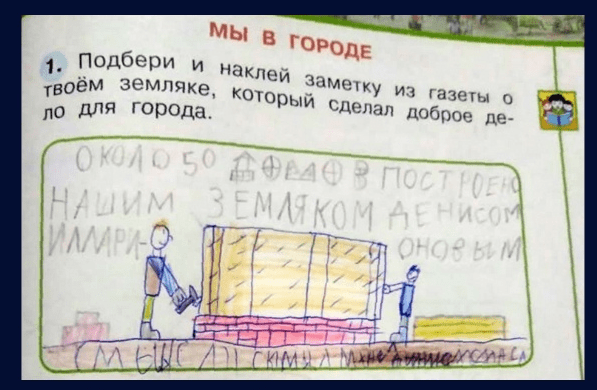 МЫ В ГОРОДЕ
1. Подбери и наклей заметку из газеты о
твоём земляке, который сделал доброе де-
ло для города.
ОКОЛО 50 ДОМОВ ПОСТРОЕНО
НАШИМ ЗЕМЛЯКОМ ДЕНИСОМ
ИЛЛАРИ- ОНОВЫМ